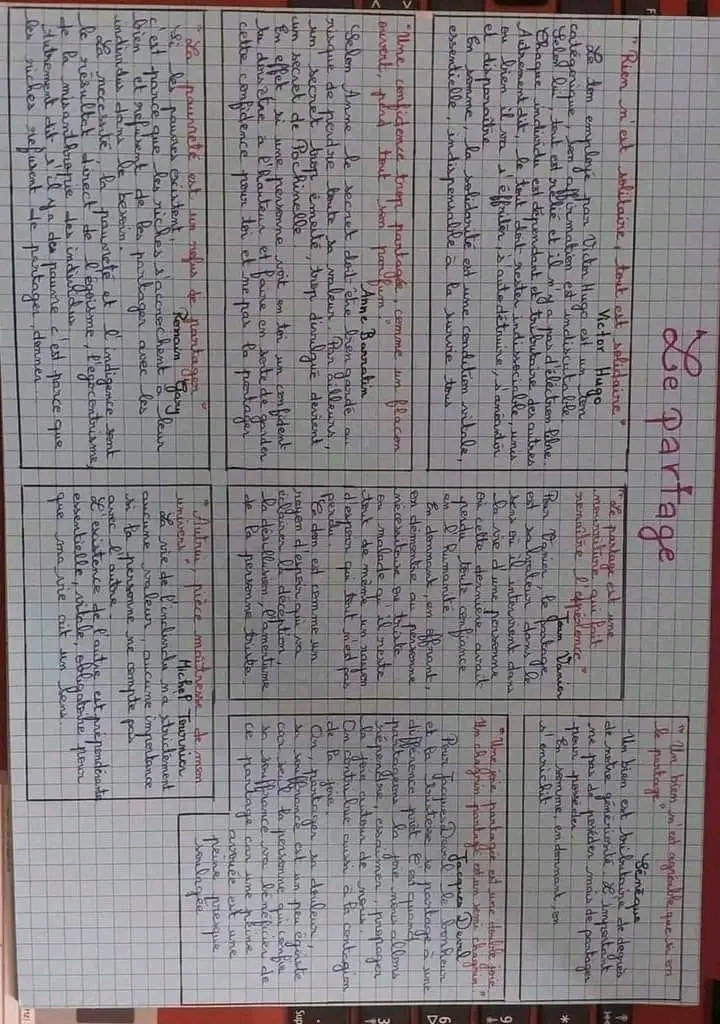 Le partage
"Rien n'est solitaire, tout est solidaire"
Victor Hugo
Le ton employé par Victor Hugo est un ton
catégorique, son affirmation est indiscutable
Selon lui, tout est rélié et il n'y a pas d'élection libre.
Chaque individu est dépendant et tributaire des autres
Autrement dit, le tout doit rester indissociable, unis
ou bien il va s'éffriter, s'autodétruire, s'anéantir
et disparaître
En somme, la solidarité est une condition vitale,
essentielle, indispensable à la survie tous
"Une confidence trop partagée, comme un flacon
ouvert, perd tout son parfum."
Anne Barratin
Selon Anne le secret doit être bien gardé au
risque de perdre toute sa valeur. Par ailleurs,
un secret trop émietté, trop divulgué devient
un secret de Pochinelle
En effet si une personne voit en toi un confident
tu dois être à l'hauteur et faire en sorte de garder
cette confidence pour toi et ne pas la partager
"La pauvreté est un refus de partager"
Romain Gary
Si les pauvres existent,
c'est parce que les riches s'accrochent à leur
bien et refusent de les partager avec les
individus dans le besoin.
La nécessité, la pauvreté et l'indigence sont
le résultat direct de l'égoïsme, l'égocentrisme,
de la misanthropie des individus
Autrement dit s'il y a des pauvre c'est parce que
les riches refusent de partager, donner...
"Le partage est une
nourriture qui fait
renaître l'espérance"
Jean Vanier
Pour Vanier, le partage
est sa valeur dans le
sens où il intervient dans
la vie d'une personne
où cette dernière avait
perdu toute confiance
en l'humanité
En donnant, en offrant,
on démontre au personne
nécessiteuse ou triste
ou malade qu'il reste
tout de même un rayon
d'espoir qui tout n'est pas
perdu.
Ce don est comme un
rayon d'espoir qui va
éclairer la déception,
la désillusion, l'amertume
de la personne triste
"Autrui, pièce maîtresse de mon
univers"
Michel Tournier
La vie de l'individu n'a strictement
aucune valeur, aucune importance
si la personne ne compte pas
avec l'autre
L'existence de l'autre est prépondérante
essentielle, vitale, obligatoire pour
que ma vie ait un sens
"Un bien n'est agréable que si on
le partage"
Sénèque
Un bien est tributaire de degrés
de notre générosité. L'important
ne pas de posséder mais de partager
pour posséder.
En somme, en donnant, on
s'enrichit
"Une joie partagée est une double joie
Un chagrin partagé est un demi chagrin"
Jacques Deval
Pour Jacques Deval le bonheur
et la tristesse se partage à une
différence prêt C'est quand
partageons la joie nous allons
répendre, essaimer propager
la joie autour de nous.
On contribue aussi à la contagion
de la joie.
Or, partager sa douleur,
sa souffrance est un peu égoïste
car seule la personne qui confie
sa souffrance va bénéficier de
ce partage car une peine
avouée est une
peine presque
soulagée